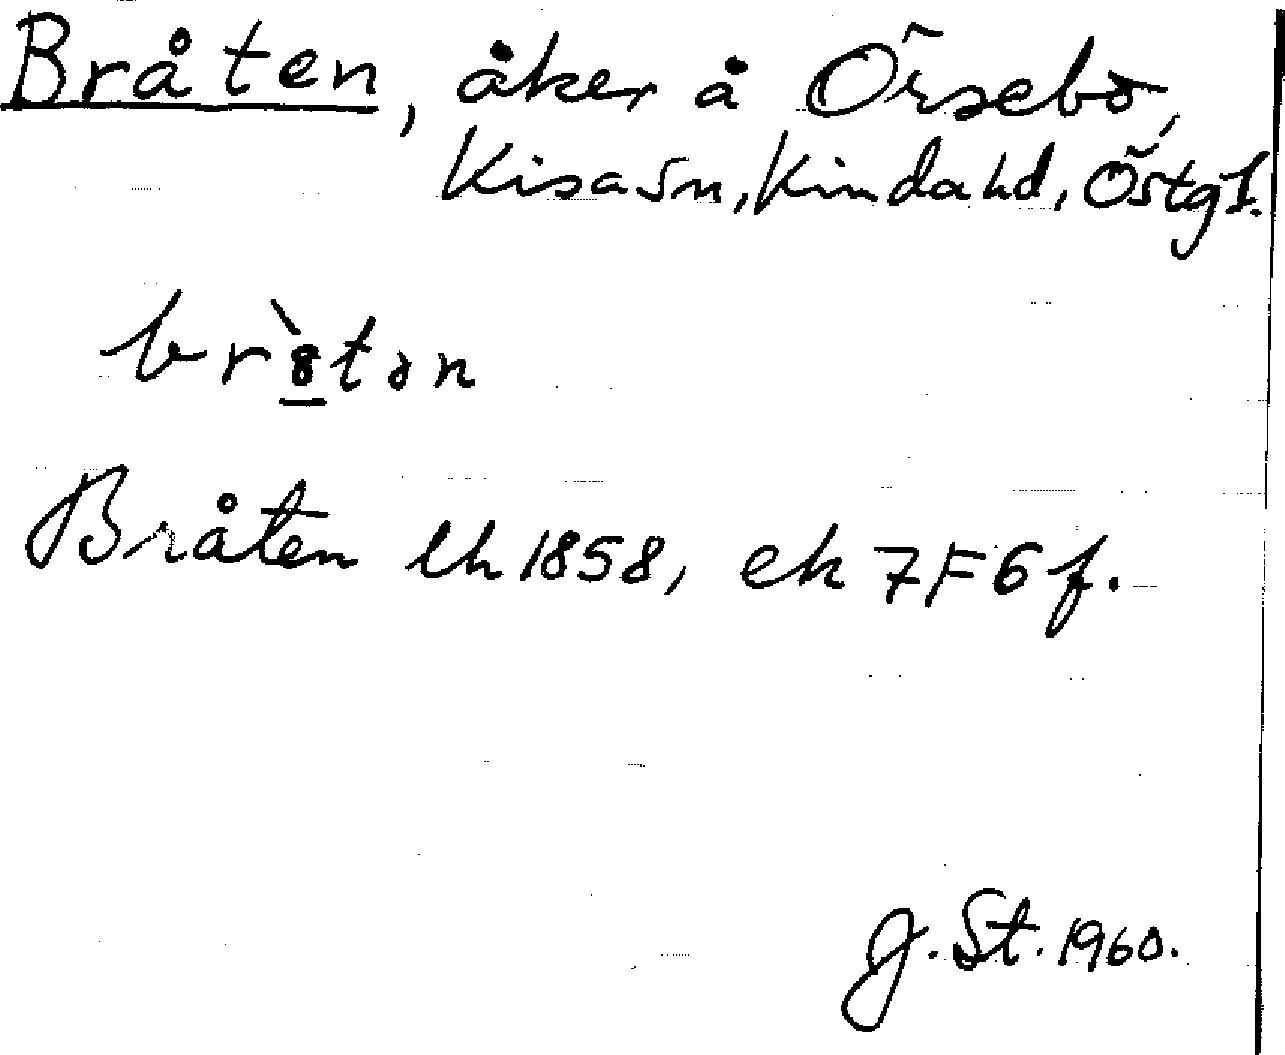 Bråten, åker å Örsebo,
Kisa sn, Kinda hd, Östgl.
Bråten lh 1858, ek 7F6f.
J. St. 1960.